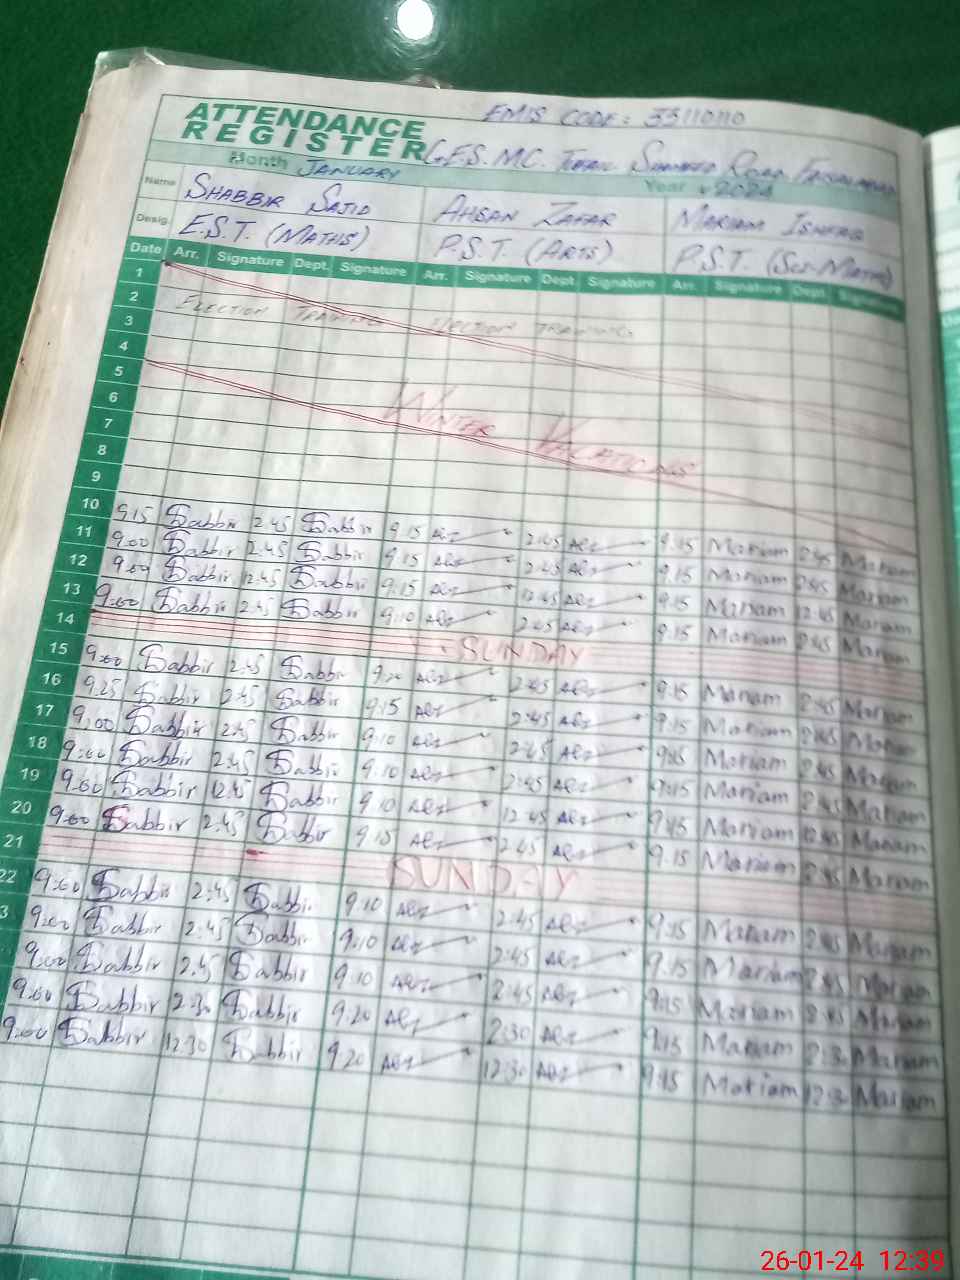 EMIS CODE: 33110110
ATTENDANCE
REGISTER
G.E.S. MC. Road
Month JANUARY Year 2024
Name SHABBIR SAJID AHSAN ZAFAR MARIAM ISHFAQ
Desig. E.S.T. (MATHS) P.S.T. (ARTS) P.S.T. (Sci-Math)
Date Arr. Signature Dept. Signature Arr. Signature Dept. Signature Arr. Signature Dept. Signature
1
2 ELECTION TRAINING ELECTION TRAINING
3
4
5
6 WINTER VACATIONS
7
8
9
10 9.15 Sabbir 2.45 Sabbir 9.15 2.45 9.15 Mariam 2.45 Mariam
11 9:00 Sabbir 2.45 Sabbir 9.15 2.45 9.15 Mariam 2.45 Mariam
12 9:00 Sabbir 12.45 Sabbir 9.15 12.45 9.15 Mariam 12.45 Mariam
13 9:00 Sabbir 2.45 Sabbir 9.10 2.45 9.15 Mariam 2.45 Mariam
14 SUNDAY
15 9:00 Sabbir 2.45 Sabbir 2.45 9.15 Mariam 2.45 Mariam
16 9.25 Sabbir 2.45 Sabbir 9.15 2.45 9.15 Mariam 2.45 Mariam
17 9:00 Sabbir 2.45 Sabbir 9.10 2.45 9.15 Mariam 2.45 Mariam
18 9:00 Sabbir 2.45 Sabbir 9.10 2.45 9.15 Mariam 2.45 Mariam
19 9:00 Sabbir 12.45 Sabbir 9.10 12.45 9.15 Mariam 12.45 Mariam
20 9:00 Sabbir 2.45 Sabbir 9.15 2.45 9.15 Mariam 2.45 Mariam
21 SUNDAY
22 9:00 Sabbir 2.45 Sabbir 9.10 2.45 9.15 Mariam 2.45 Mariam
3 9:00 Sabbir 2.45 Sabbir 9.10 2.45 9.15 Mariam 2.45 Mariam
9:00 Sabbir 2.45 Sabbir 9.10 2.45 9.15 Mariam 2.45 Mariam
9:00 Sabbir 2.30 Sabbir 9.20 2:30 9.15 Mariam 2:30 Mariam
9:00 Sabbir 12.30 Sabbir 9.20 12:30 9.15 Mariam 12:30 Mariam
26-01-24 12:39